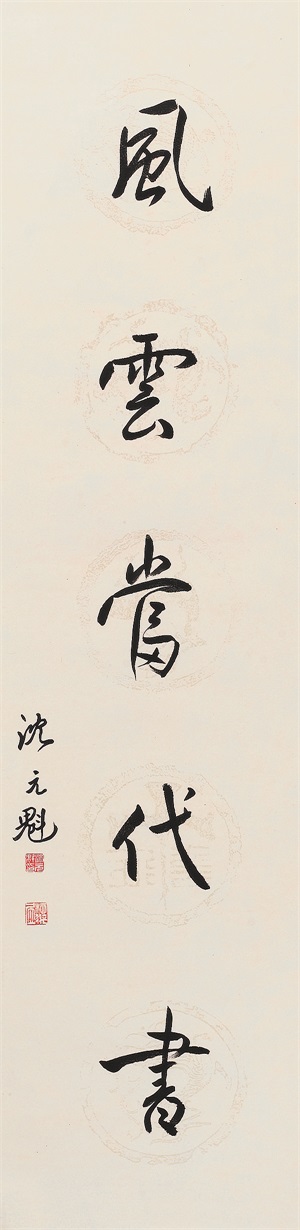 風雲當代書
沈元魁